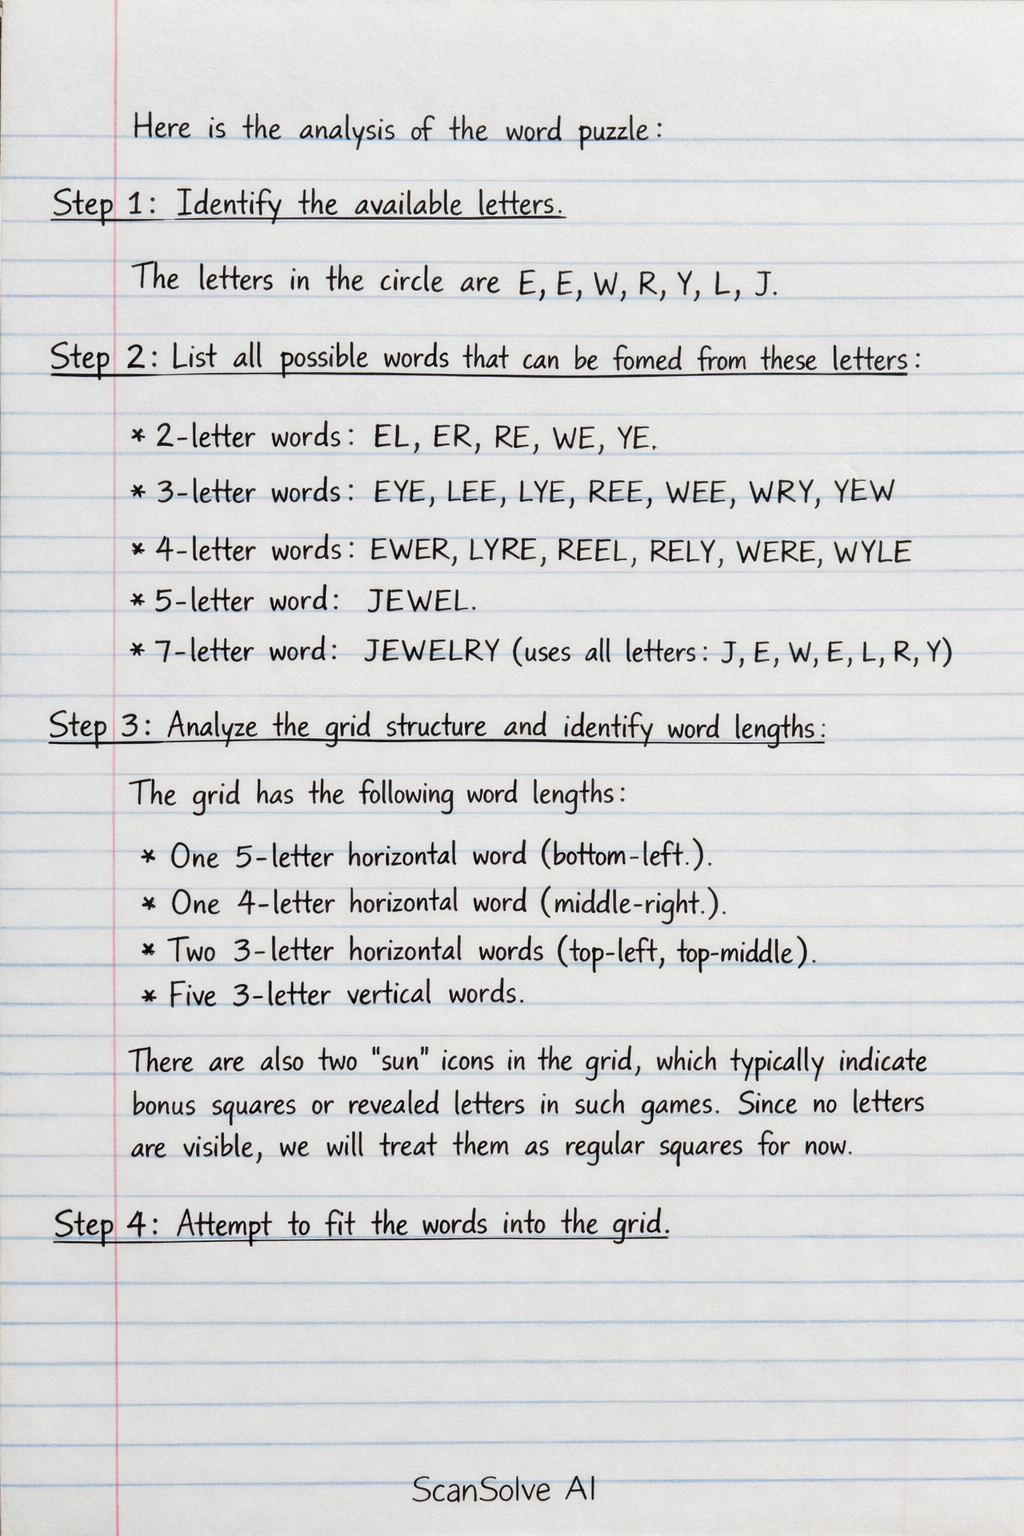 Here is the analysis of the word puzzle:
Step 1: Identify the available letters.
The letters in the circle are E, E, W, R, Y, L, J.
Step 2: List all possible words that can be fomed from these letters:
* 2-letter words: EL, ER, RE, WE, YE.
* 3-letter words: EYE, LEE, LYE, REE, WEE, WRY, YEW
* 4-letter words: EWER, LYRE, REEL, RELY, WERE, WYLE
* 5-letter word: JEWEL.
* 7-letter word: JEWELRY (uses all letters: J, E, W, E, L, R, Y)
Step 3: Analyze the grid structure and identify word lengths:
The grid has the following word lengths:
* One 5-letter horizontal word (bottom-left.).
* One 4-letter horizontal word (middle-right.).
* Two 3-letter horizontal words (top-left, top-middle).
* Five 3-letter vertical words.
There are also two "sun" icons in the grid, which typically indicate
bonus squares or revealed letters in such games. Since no letters
are visible, we will treat them as regular squares for now.
Step 4: Attempt to fit the words into the grid.
ScanSolve AI